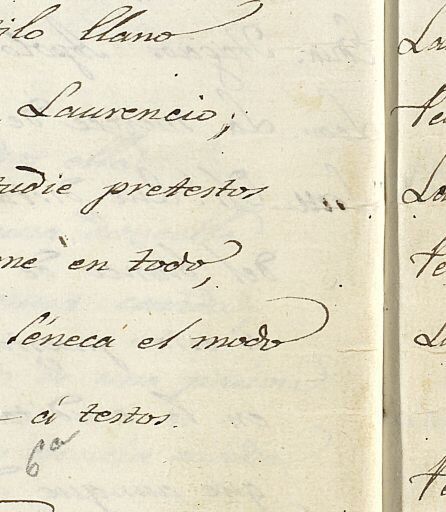 ilo llano
Laurencio;
tudie pretestos
me en todo,
Séneca el modo
á testos.
6a
La
Fe
La
Fe
La
Fe